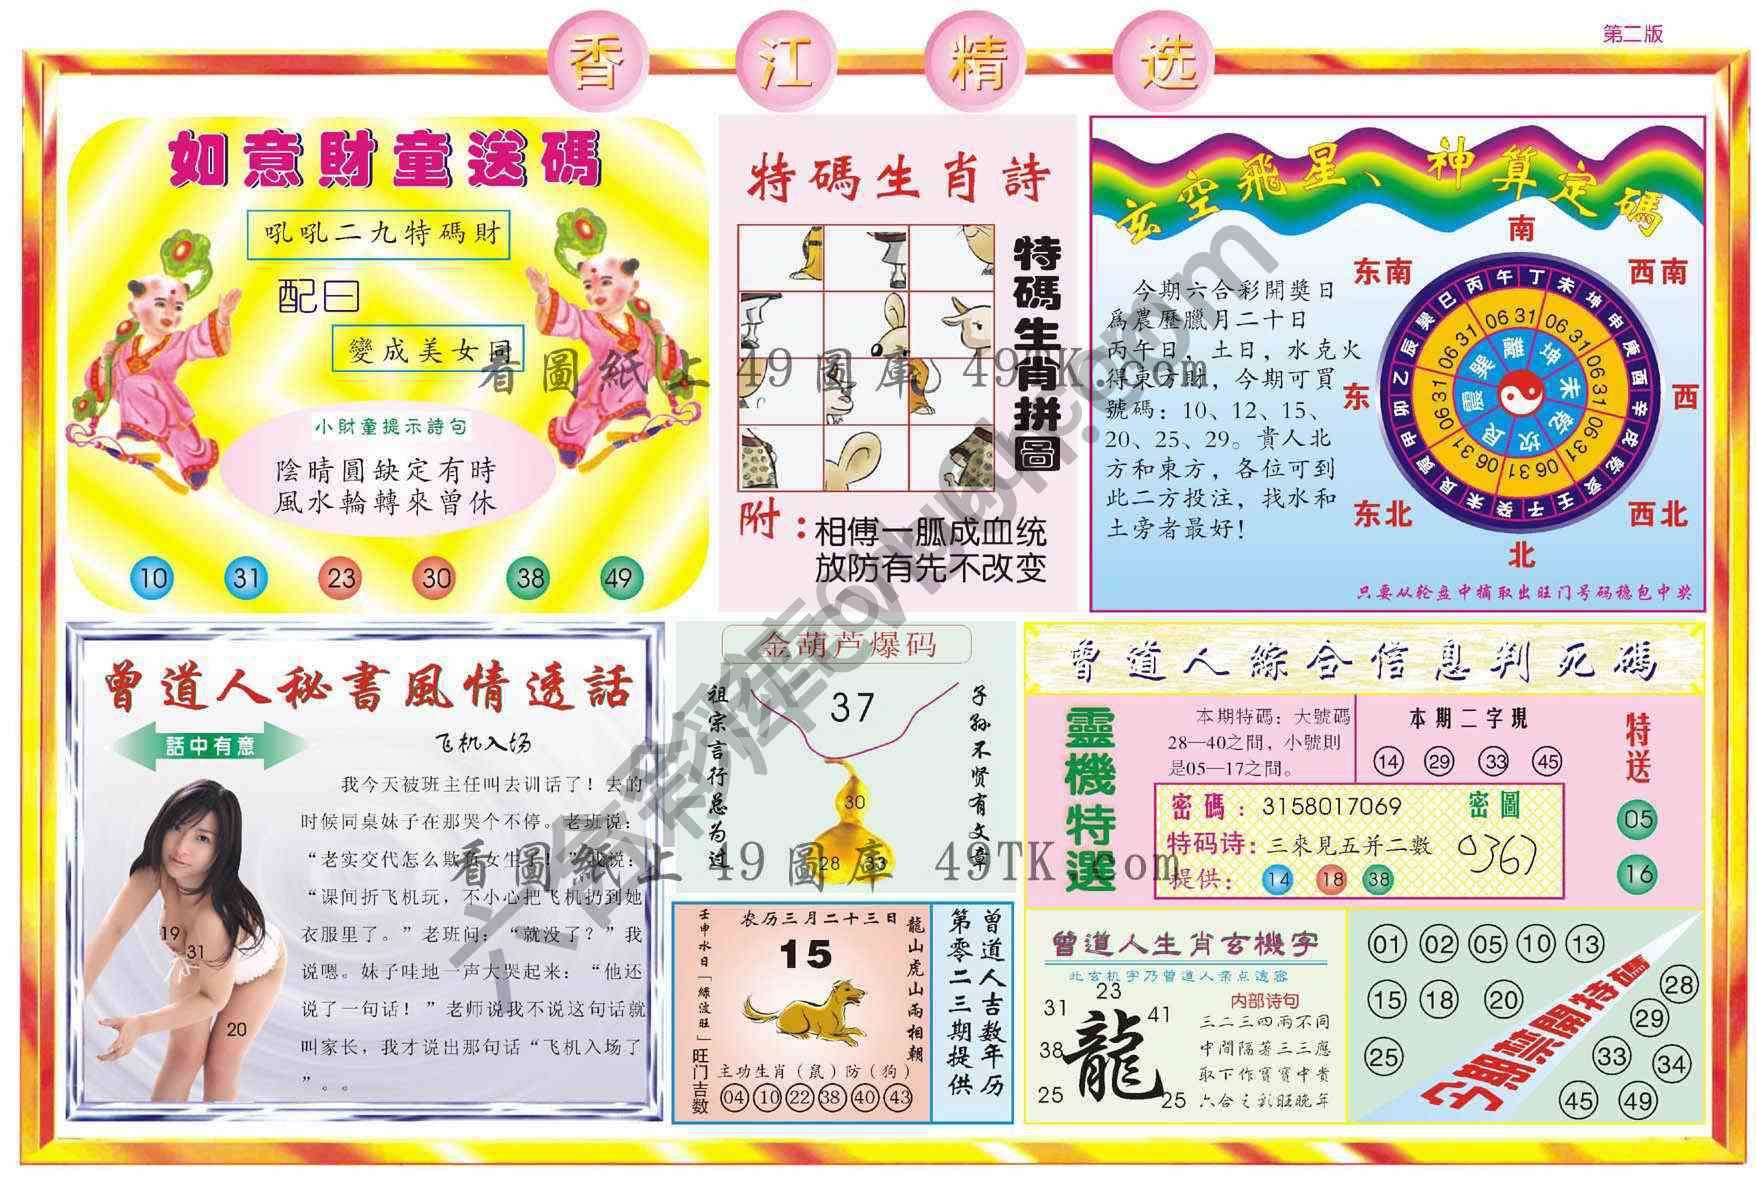 第二版
香江精选
如意財童送碼
吼吼二九特碼財
配曰
變成美女同
小財童提示詩句
陰晴圓缺定有時
風水輪轉來曾休
10 31 23 30 38 49
特碼生肖詩
特碼生肖拼圖
附：相傅一脈成血统
放防有先不改变
玄空飛星、神算定碼
今期六合彩開獎日
爲農歷臘月二十日
丙午日，土日，水克火
得東方財，今期可買
號碼：10、12、15、
20、25、29。貴人北
方和東方，各位可到
此二方投注，找水和
土旁者最好！
南
东南 西南
东 西
东北 西北
北
只要从轮盘中摘取出旺门号码稳包中奖
看圖紙上 49 圖庫 49TK.com
曾道人秘書風情透話
話中有意
飞机入场
我今天被班主任叫去训话了！去的
时候同桌妹子在那哭个不停。老班说：
“老实交代怎么欺负女生了！”我说：
“课间折飞机玩，不小心把飞机扔到她
衣服里了。”老班问：“就没了？”我
说嗯。妹子哇地一声大哭起来：“他还
说了一句话！”老师说我不说这句话就
叫家长，我才说出那句话“飞机入场了
”。。
19
31
20
金葫芦爆码
祖宗言行总为过
37
子孙不贤有文章
30
28 33
看圖紙上 49 圖庫 49TK.com
壬申水日「绿波旺」旺门吉数
农历三月二十三日
15
龍山虎山兩相朝
主功生肖（鼠）防（狗）
04 10 22 38 40 43
曾道人吉数年历
第零二三期提供
曾道人綜合信息判死碼
靈機特選
本期特碼：大號碼
28—40之間，小號則
是05—17之間。
本期二字現
14 29 33 45
特送
05
16
密碼：3158017069
密圖
0367
特码诗：三來見五并二數
提供：14 18 38
曾道人生肖玄機字
此玄机字乃曾道人亲点透露
23
31 41
38
龍
25 25
内部诗句
三二三四兩不同
中間隔著三三應
取下作寶寶中贵
01 02 05 10 13
15 18 20 28
29
25 33 34
45 49
今期禁開特碼